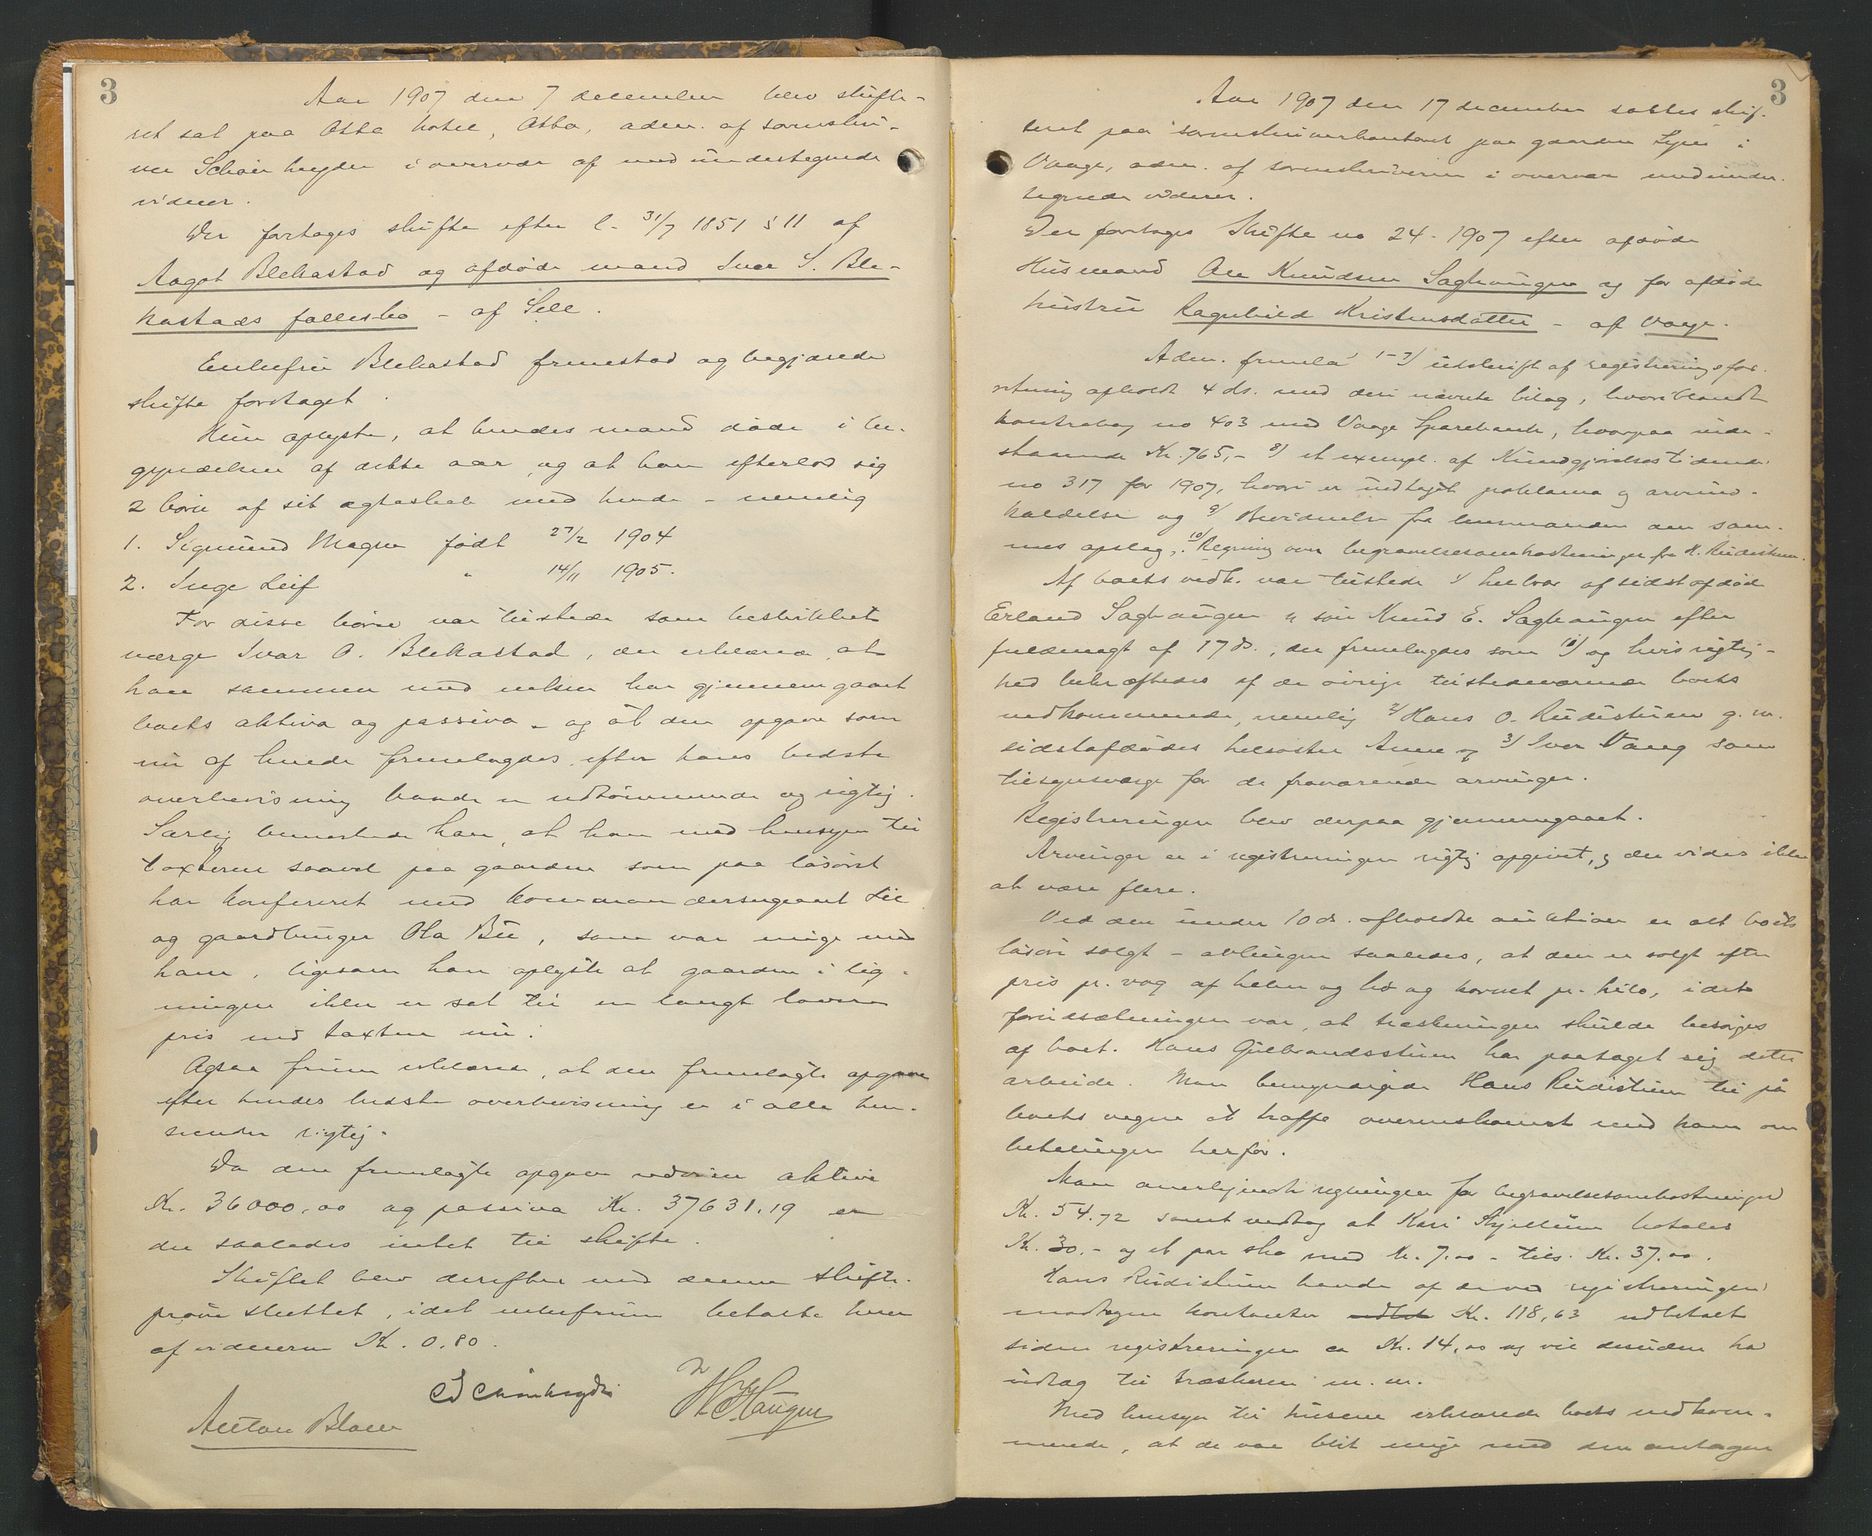 3
Aar 1907 den 7 december blev skifte-
ret sat paa Otta hotel, Otta, adm. af sorenskri-
ver Schönheyder i overvær af medundertegnede
vidner.
Der foretages skifte efter l. 31/7 1851 § 11 af
Aagot Blekastad og afdøde mand Ivar S. Ble-
kastads fællesbo - af Sell.
Enkefru Blekastad fremstod og begjærede
skifte foretaget.
Hun oplyste, at hendes mand døde i be-
gyndelsen af dette aar, og at han efterlod sig
2 børn af sit ægteskab med hende - nemlig
1. Sigmund Magne født 27/2 1904
2. Inge Leif " 14/11 1905.
For disse børn var tilstede som beskikket
værge Ivar O. Blekastad, der erklærte, at
han sammen med enken har gjennemgaaet
boets aktiva og passiva - og at den opgave som
nu af hende fremlagdes, efter hans bedste
overbevisning baade er udtømmende og rigtig.
Særlig bemerkede han, at han med hensyn til
taxterne saavel paa gaarden som paa løsøret
har konfereret med kommandersergeant Lie
og gaardbruger Ola Bu, som var enige med
ham, ligesom han oplyste at gaarden i lig-
ningen ikke er sat til en langt lavere
pris end taxten nu.
Ogsaa fruen erklærte, at den fremlagte opgave
efter hendes bedste overbevisning er i alle hen-
seender rigtig.
Da den fremlagte opgave udviser aktiva
Kr. 36000,00 og passiva Kr. 37631,19 er
der saaledes intet til skifte.
Skiftet blev derefter med denne skifte-
prøve sluttet, idet enkefruen betalte hver
af vidnerne Kr. 0,80.
CSchönheyder
Haugen
Anton Blom
3
Aar 1907 den 17 december sattes skif-
teret paa sorenskriverkontoret paa gaarden Syse i
Vaage, adm. af sorenskriveren i overvær medunder-
tegnede vidner.
Der foretages Skifte no 24-1907 efter afdøde
Husmand Ole Knudsen Saghaugen og før afdøde
hustru Ragnhild Kristensdatter - af Vaage.
Adm. fremla 1-7) utskrift af registreringsfor-
retning afholdt 4 ds. med deri nævnte bilag, hvoriblandt
kontrabog no 403 med Vaage Sparebank, hvorpaa inde-
staaende Kr. 765,- 8) et exempl. af Kundgjørelsestidende
no 317 for 1907, hvori er indtaget proklama og arveind-
kaldelse og 9) Bevidnelse fra lensmanden om sam-
mes opslag, 10) Regning over begravelsesomkostninger fra H. Rudistuen.
Af boets vedk. var tilstede 1) helbror af sidstafdøde
Erland Saghaugen v. søn Knud E. Saghaugen efter
fuldmagt af 17 ds., der fremlagdes som 11) og hvis rigtig-
hed bekræftedes af de øvrige tilstedeværende boets
vedkommende, nemlig 2) Hans O. Rudistuen g. m.
sidstafdødes helsøster Anne og 3) Iver Vang som
tilsynsværge for de fraværende arvinger.
Registreringen blev derpaa gjennemgaaet.
Arvinger er i registreringen rigtig opgivet, og der vides ikke
at være flere.
Ved den under 10 ds. afholdte auktion er alt boets
løsøre solgt - avlingen saaledes, at den er solgt efter
pris pr. vog af halm og hø og kornet pr. kilo, idet
forudsætningen var, at træskningen skulde besørges
af boet. Hans Gulbrandsstuen har paataget sig dette
arbeide. Man bemyndigede Hans Rudistuen til på
boets vegne at træffe overenskomst med ham om
betalingen herfor.
Man anerkjendte regningen for begravelsesomkostninger
Kr. 54.72 samt vedtog at Kari Skjellum betales
Kr. 30.- og et par sko med Kr. 7.00 - tils. Kr. 37.00.
Hans Rudistuen havde af de ved registreringen
modtagne kontanter Kr. 118,63 udbetalt
siden registreringen ca Kr. 14,00 og vil desuden ha
utlæg til træskeren m. m.
Med hensyn til husene erklærede boets vedkom-
mende, at de var blit enige med den antagne